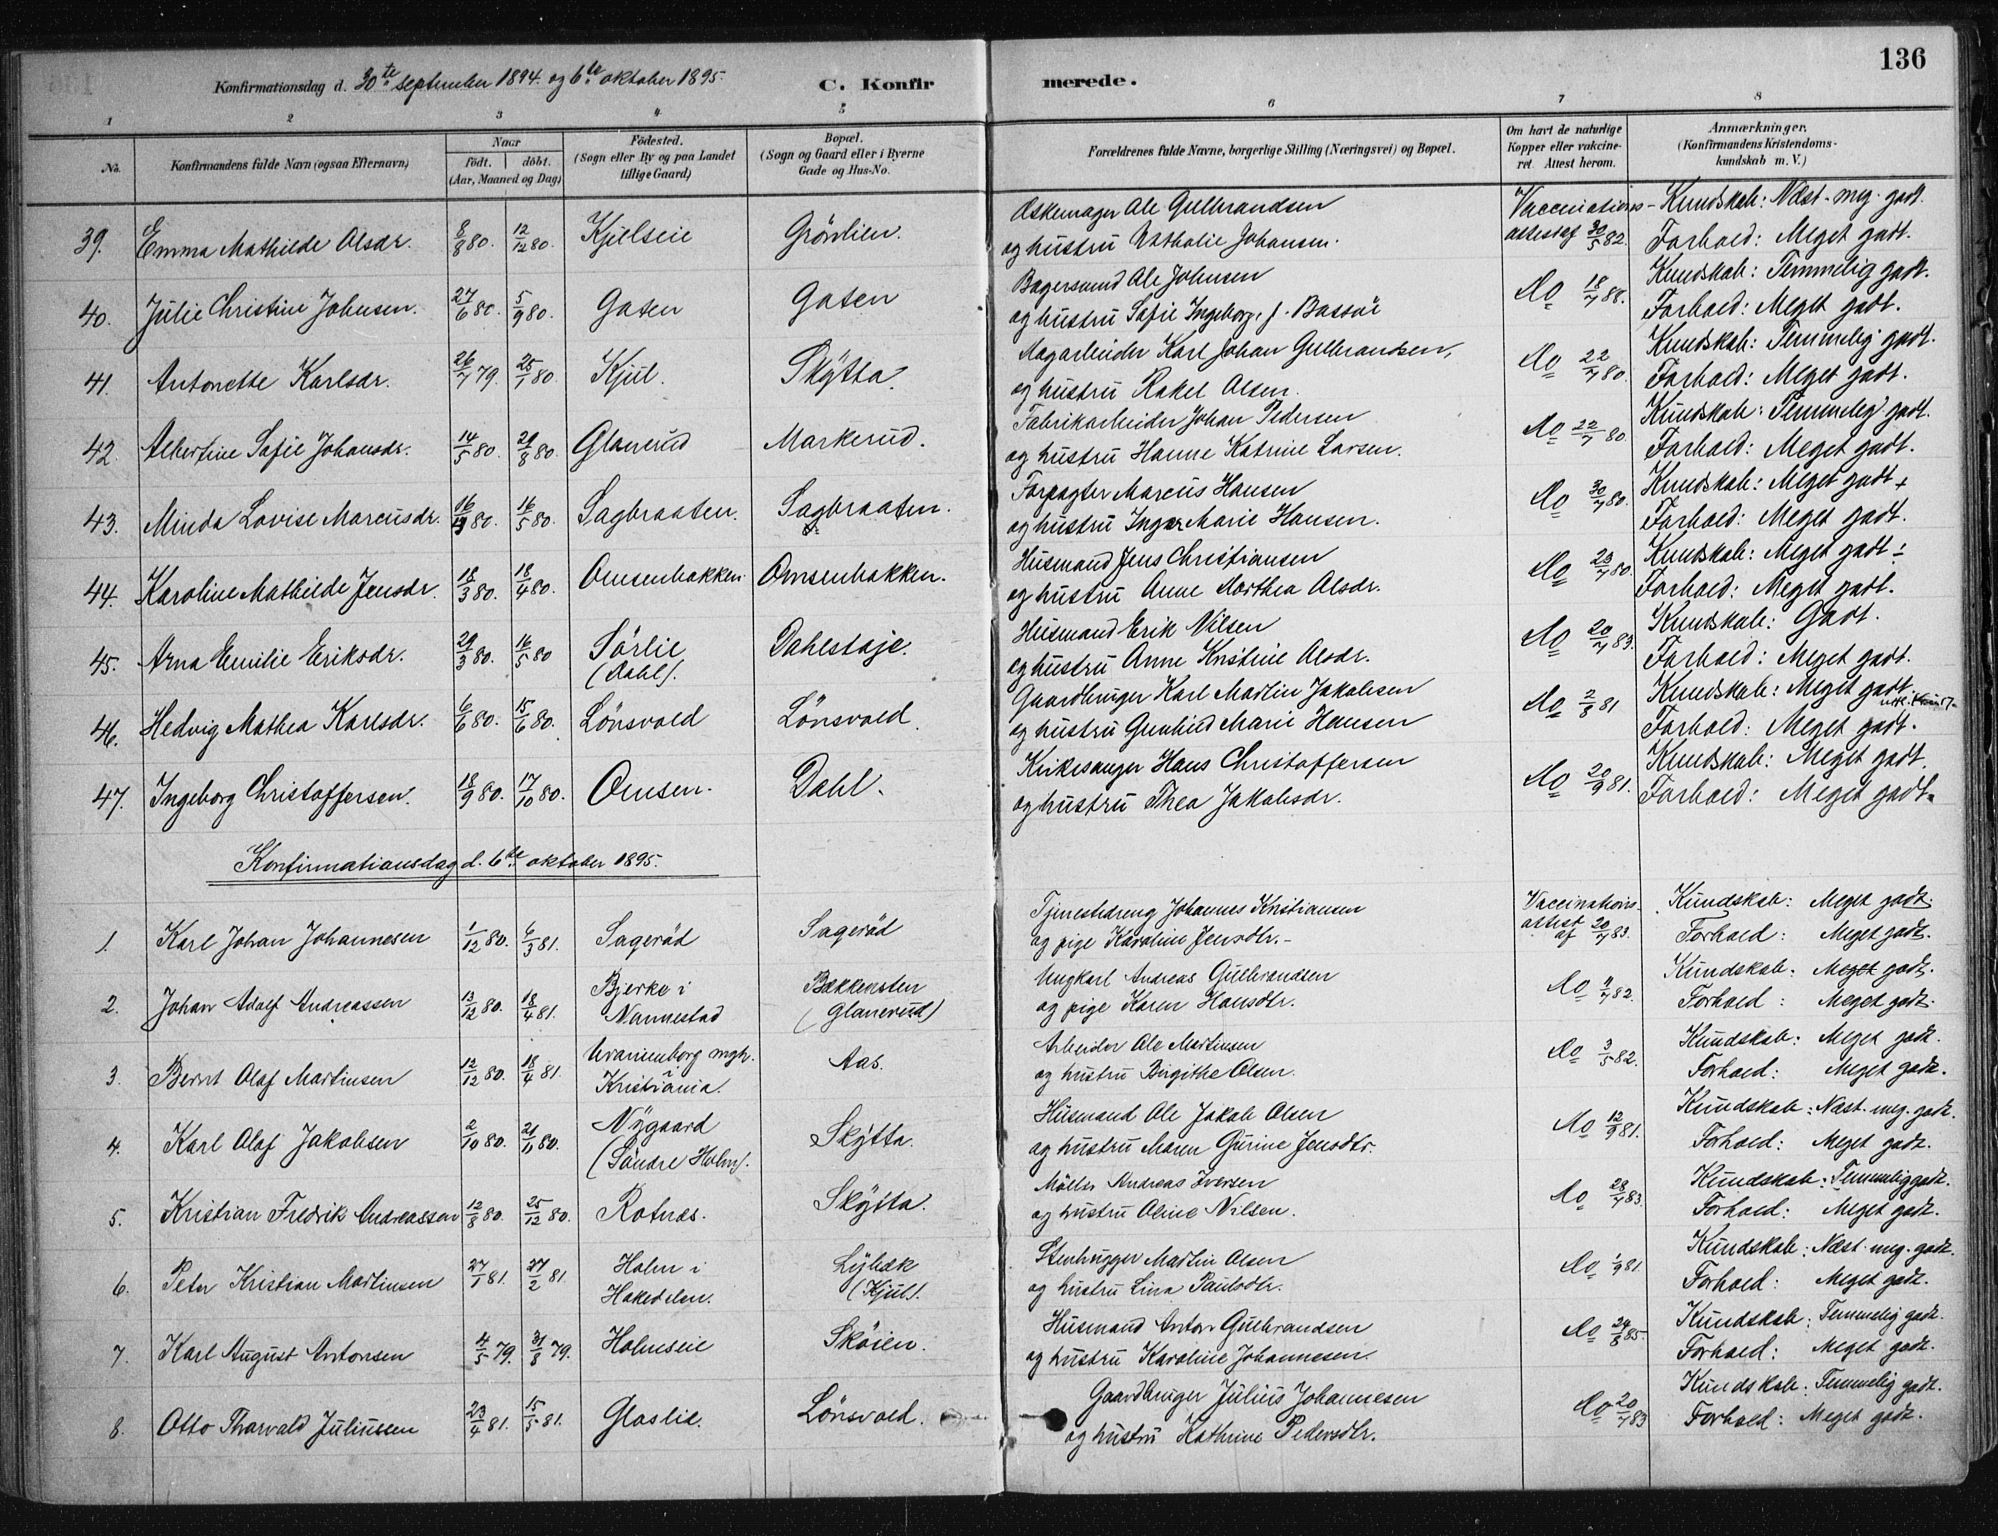 136
Konfirmationsdag d. 30te september 1894. og 6te oktober 1895.
C. Konfir
merede.
1 2 3 4 5 6 7 8
No.
Konfirmandens fulde Navn (ogsaa Efternavn)
Naar
født. døbt.
(Aar, Maaned og Dag)
Fødested.
(Sogn eller By og paa Landet
tillige Gaard)
Bopæl.
(Sogn og Gaard eller i Byerne
Gade og Hus-No.
Forældrenes fulde Navne, borgerlige Stilling (Næringsvei) og Bopæl.
Om havt de naturlige
Kopper eller vakcine-
ret. Attest herom.
Anmærkninger.
(Konfirmandens Kristendoms-
kundskab m. V.)
39. Emma Mathilde Olsdr. 8/8 80. 12/12 80. Kjulseie Grönlien. Æskemager Ole Gulbrandsen Vaccinations- Kundskab: Næst. meg. godt.
og hustru Nathalie Johansen. attest af 30/5 82. Forhold: Meget godt.
40. Julie Christine Johnsen. 27/6 80. 5/9 80. Gasen Gasen Bagersvend Ole Johnsen Do 18/7 88. Kundskab: Temmelig godt.
og hustru Sofie Ingeborg, f. Bassöe Forhold: Meget godt.
41. Antonette Karlsdr. 26/7 79. 25/1 80. Kjul. Skÿtta. Dagarbeider Karl Johan Gulbrandsen, Do 22/7 80. Kundskab: Temmelig godt.
og hustru Rakel Olsen. Forhold: Meget godt.
42. Albertine Sofie Johansdr. 14/5 80. 29/8 80. Glanerud Markerud. Fabrikarbeider Johan Pedersen Do 22/7 80. Kundskab: Temmelig godt.
og hustru Hanne Katrine Larsen. Forhold: Meget godt.
43. Minda Lovise Marcusdr. 16/3 80. 16/5 80. Sagbraaten. Sagbraaten. Forpagter Marcus Hansen Do 30/7 80. Kundskab: Meget godt +
og hustru Inger Marie Hansen. Forhold: Meget godt.
44. Karoline Mathilde Jensdr. 18/3 80. 18/4 80. Omsenbakken Omsenbakken. Husmand Jens Christiansen Do 23/7 80. Kundskab: Meget godt ÷
og hustru Anne Marthea Olsdr. Forhold: Meget godt.
45. Arna Emilie Eriksdr. 29/3 80. 16/5 80 Sörlie Dahlstøje. Husmand Erik Nilsen Do 20/7 83. Kundskab: Godt.
(Dahl). og hustru Anne Kristine Olsdr. Forhold: Meget godt.
46. Hedvig Mathea Karlsdr. 6/6 80. 15/6 80. Lönsvold Lönsvold. Gaardbruger Karl Martin Jakobsen Do 2/8 81 Kundskab: Meget godt.
og hustru Gunhild Marie Hansen Forhold: Meget godt.
47. Ingeborg Christoffersen. 18/9 80. 17/10 80. Omsen. Dahl. Kirkesanger Hans Christoffersen Do 20/9 81. Kundskab: Meget godt.
og hustru Thea Jakobsdr. Forhold: Meget godt.
Konfirmationsdag d. 6te oktober 1895.
1. Karl Johan Johannesen 1/12 80. 6/3 81. Sageröd Sageröd Tjenestedreng Johannes Kristiansen Vaccinations- Kundskab: Meget godt.
og pige Karoline Jensdtr. attest af 20/7 83. Forhold: Meget godt.
2. Johan Adolf Andreassen 13/12 80. 18/4 81. Bjerke i Bækkensten Ungkarl Andreas Gulbrandsen Do 11/7 82. Kundskab: Meget godt.
Nannestad (Glanerud) og pige Karen Hansdtr. Forhold: Meget godt.
3. Bernt Olaf Martinsen 12/12 80. 18/4 81. Uranienborg mgh. Aas. Arbeider Ole Martinsen Do 3/5 82. Kundskab: Meget godt.
i Kristiania. og hustru Birgithe Olsen. Forhold: Meget godt.
4. Karl Olaf Jakobsen 2/10 80. 21/11 80. Nÿgaard Skÿtta. Husmand Ole Jakob Olsen Do 12/9 81. Kundskab: Næst. meg. godt.
(Söndre Holm). og hustru Maren Gurine Jensdtr. Forhold: Meget godt.
5. Kristian Fredrik Andreassen 12/8 80. 25/12 80. Rotnæs. Skÿtta. Möller Andreas Iversen Do 28/7 83. Kundskab: Temmelig godt.
og hustru Oline Nilsen. Forhold: Meget godt.
6. Peter Kristian Martinsen 27/1 81. 27/2 81. Holm i Lÿbæk Stenhugger Martin Olsen Do 1/9 81. Kundskab: Næst. meg. godt.
Hakedalen. (Kjul). og hustru Lina Paulsdtr. Forhold: Meget godt.
7. Karl August Antonsen 4/5 79. 31/8 79. Holmseie Sköien. Husmand Anton Gulbrandsen Do 24/8 85. Kundskab: Temmelig godt.
og hustru Karoline Johannesen. Forhold: Meget godt.
8. Otto Tharvald Juliussen 23/4 81. 15/5 81. Glaslie. Lönsvold. Gaardbruger Julius Johannesen Do 20/7 83 Kundskab: Temmelig godt.
og hustru Kathrine Pedersdtr. Forhold: Meget godt.